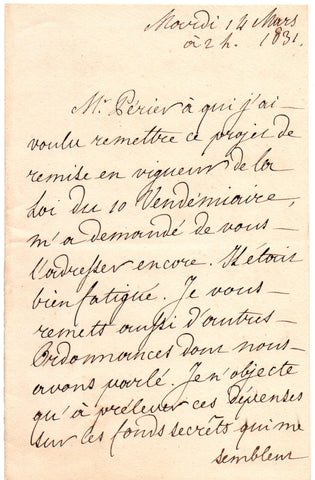 Mardi 14 Mars
à 2 h. 1831.
Mr. Périer à qui j'ai
voulu remettre ce projet de
remise en vigueur de la
Loi du 10 Vendémiaire,
m'a demandé de vous
l'adresser encore. Il étoit
bien fatigué. Je vous
remets aussi d'autres
Ordonnances dont nous
avons parlé. Je n'objecte
qu'à prélever ces dépenses
sur les fonds secrèts qui me
semblent